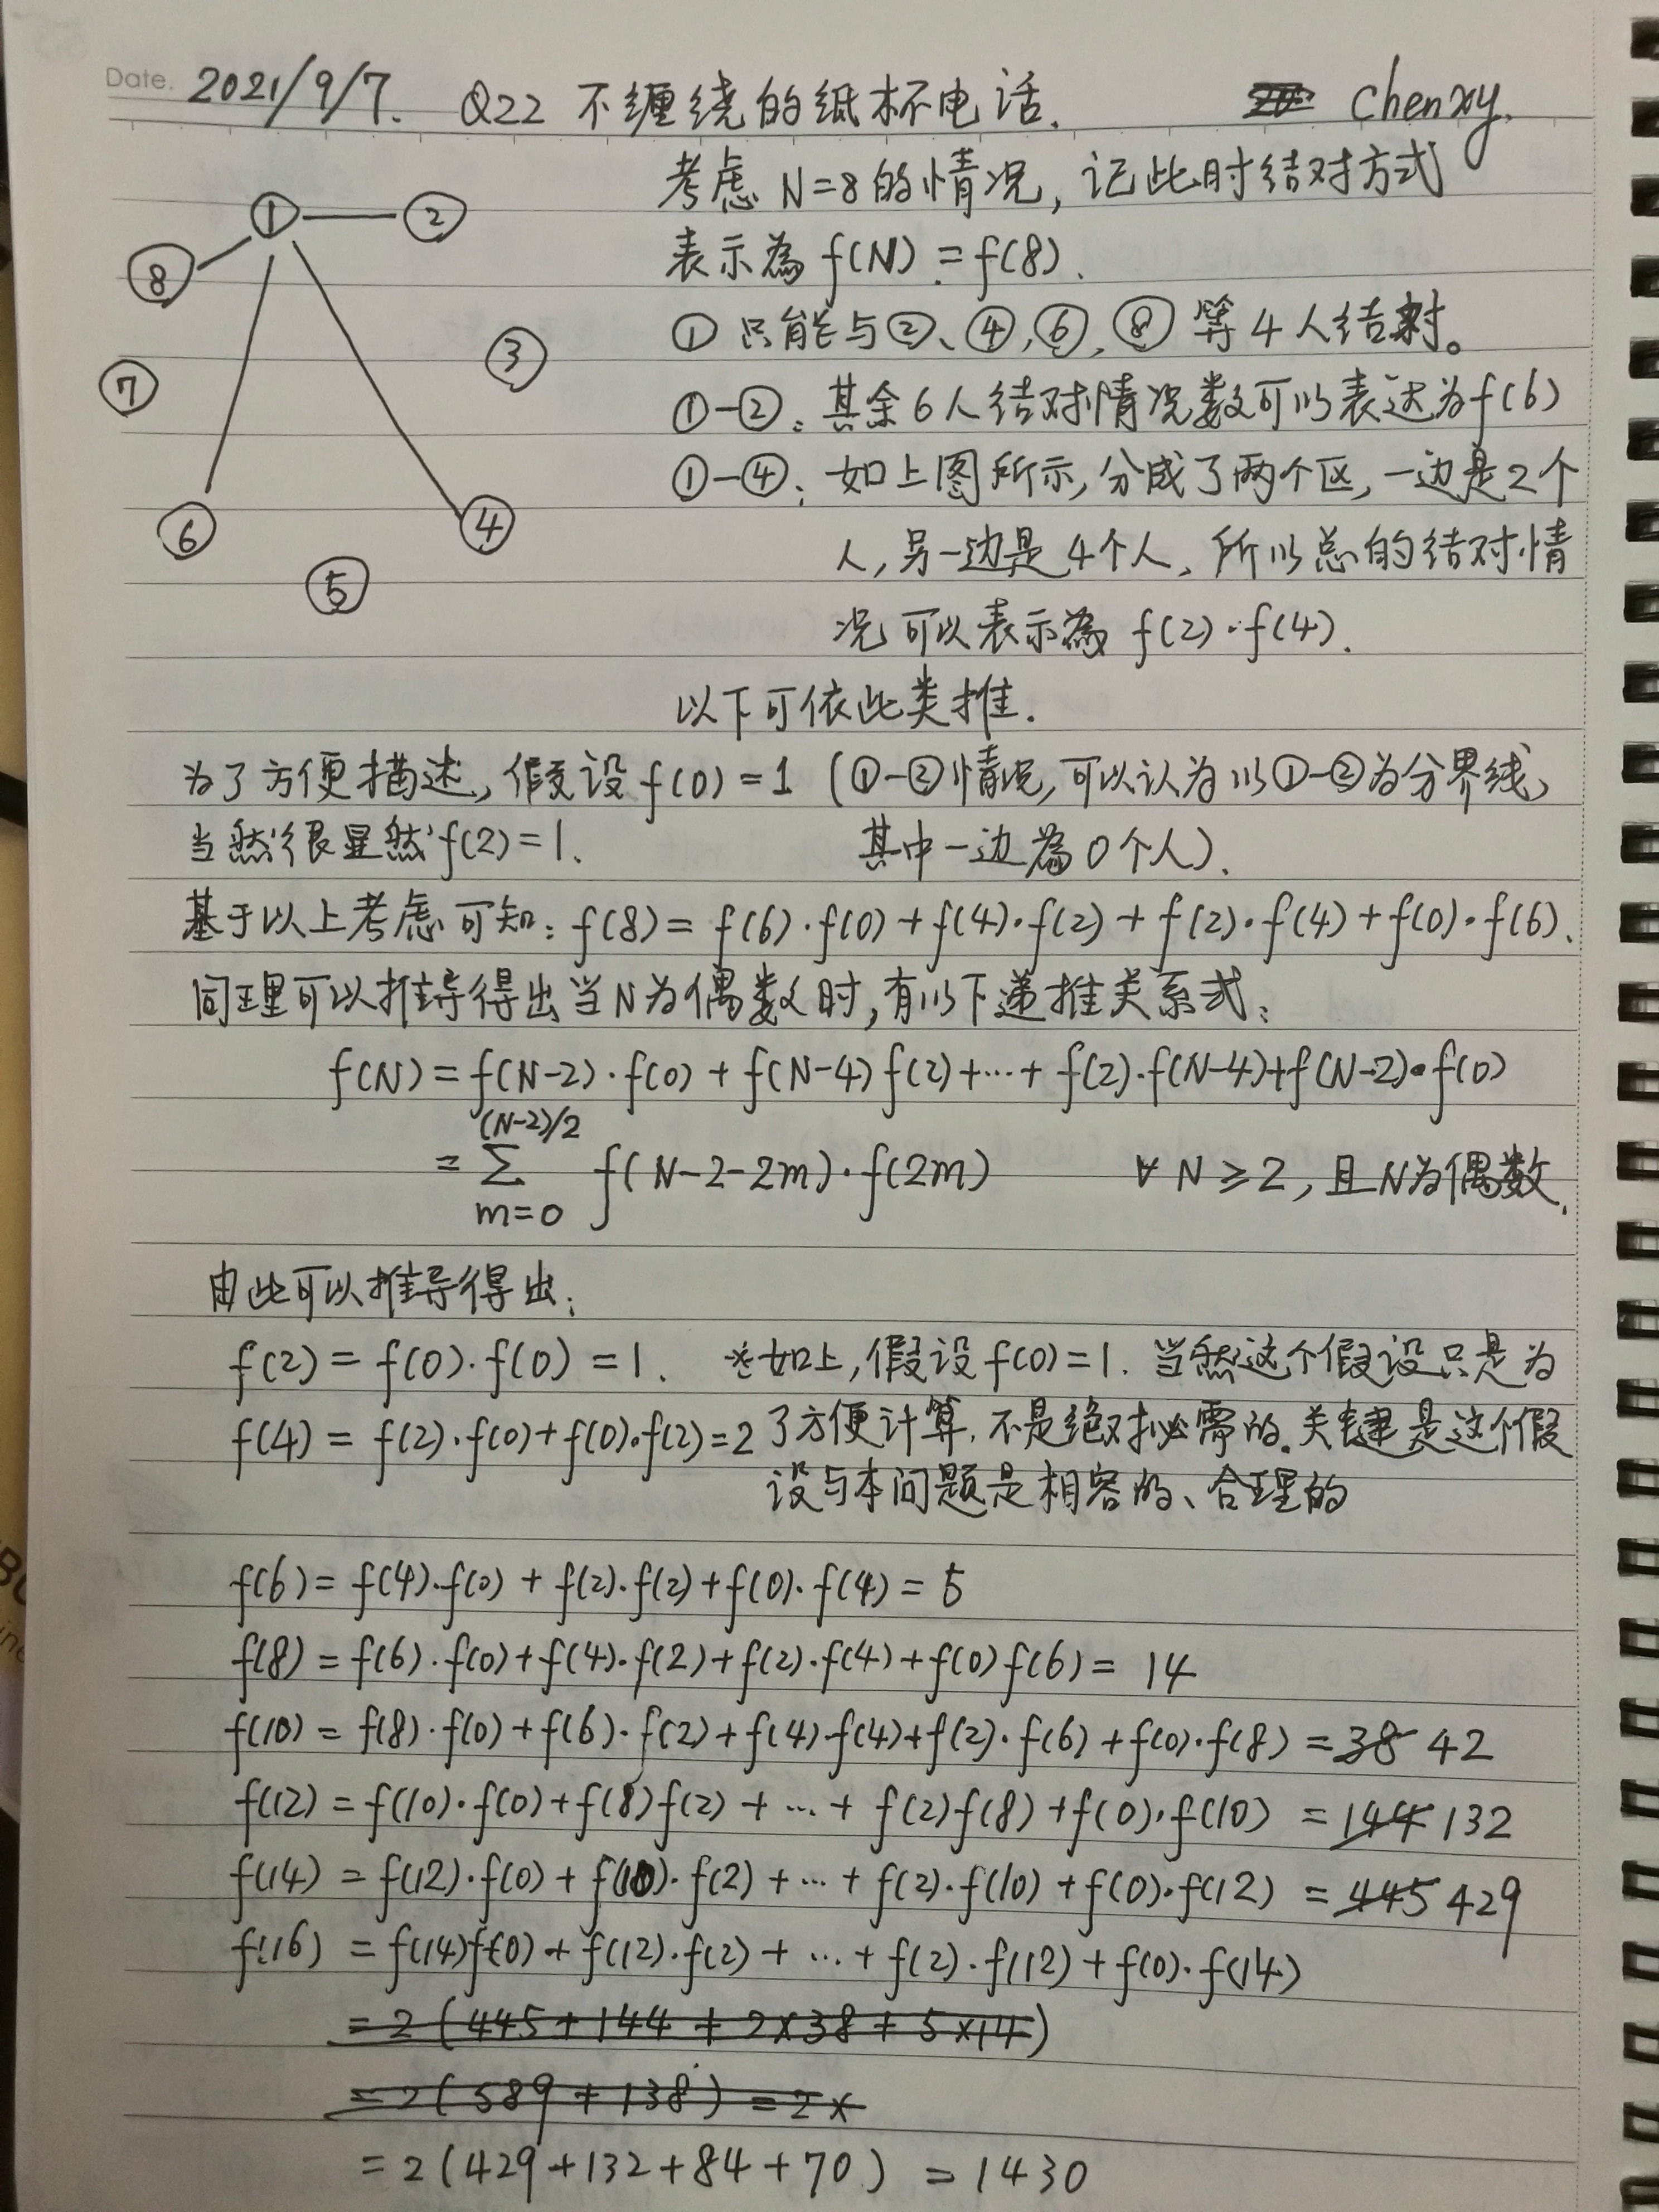 Date. 2021/9/7. Q22 不缠绕的纸杯电话. Chenxy.
考虑 N=8 的情况, 记此时结对方式
表示為 f(N) = f(8).
① 只能与②、④,⑥,⑧ 等4人结对。
①-②: 其余6人结对情况数可以表达为f(6)
①-④: 如上图所示,分成了两个区,一边是2个
人,另一边是4个人、所以总的结对情
况可以表示為 f(2)·f(4).
以下可依此类推.
① ② ③ ④ ⑤ ⑥ ⑦ ⑧
为了方便描述,假设 f(0)=1 (①-②情况,可以认为以①-②为分界线,
当然很显然f(2)=1. 其中一边為0个人).
基于以上考虑可知: f(8)= f(6)·f(0)+f(4)·f(2)+f(2)·f(4)+f(0)·f(6).
同理可以推导得出当N为偶数时,有以下递推关系式:
f(N)=f(N-2)·f(0)+f(N-4)f(2)+···+f(2)·f(N-4)+f(N-2)·f(0)
= (N-2)/2 Σ m=0 f(N-2-2m)·f(2m) ∀ N≥2, 且N为偶数.
由此可以推导得出:
f(2) = f(0)·f(0) =1. ※如上,假设f(0)=1. 当然这个假设只是为
f(4) = f(2)·f(0)+f(0)·f(2)=2 了方便计算,不是绝对必需的.关键是这个假
设与本问题是相容的、合理的
f(6)= f(4)·f(0) + f(2)·f(2)+f(0)·f(4) = 5
f(8) = f(6)·f(0)+f(4)·f(2)+f(2)·f(4)+f(0)f(6)= 14
f(10) = f(8)·f(0)+f(6)·f(2)+f(4)·f(4)+f(2)·f(6)+f(0)·f(8) = 38 42
f(12) = f(10)·f(0)+f(8)f(2) + ··· + f(2)f(8)+f(0)·f(10) = 144 132
f(14) = f(12)·f(0) + f(10)·f(2) + ··· + f(2)·f(10) +f(0)·f(12) = 445 429
f(16) = f(14)f(0) + f(12)·f(2) + ··· + f(2)·f(12)+f(0)·f(14)
= 2 (445+144+2×38+5×14)
= 2 (589+138) = 2×
= 2 (429+132+84+70) = 1430